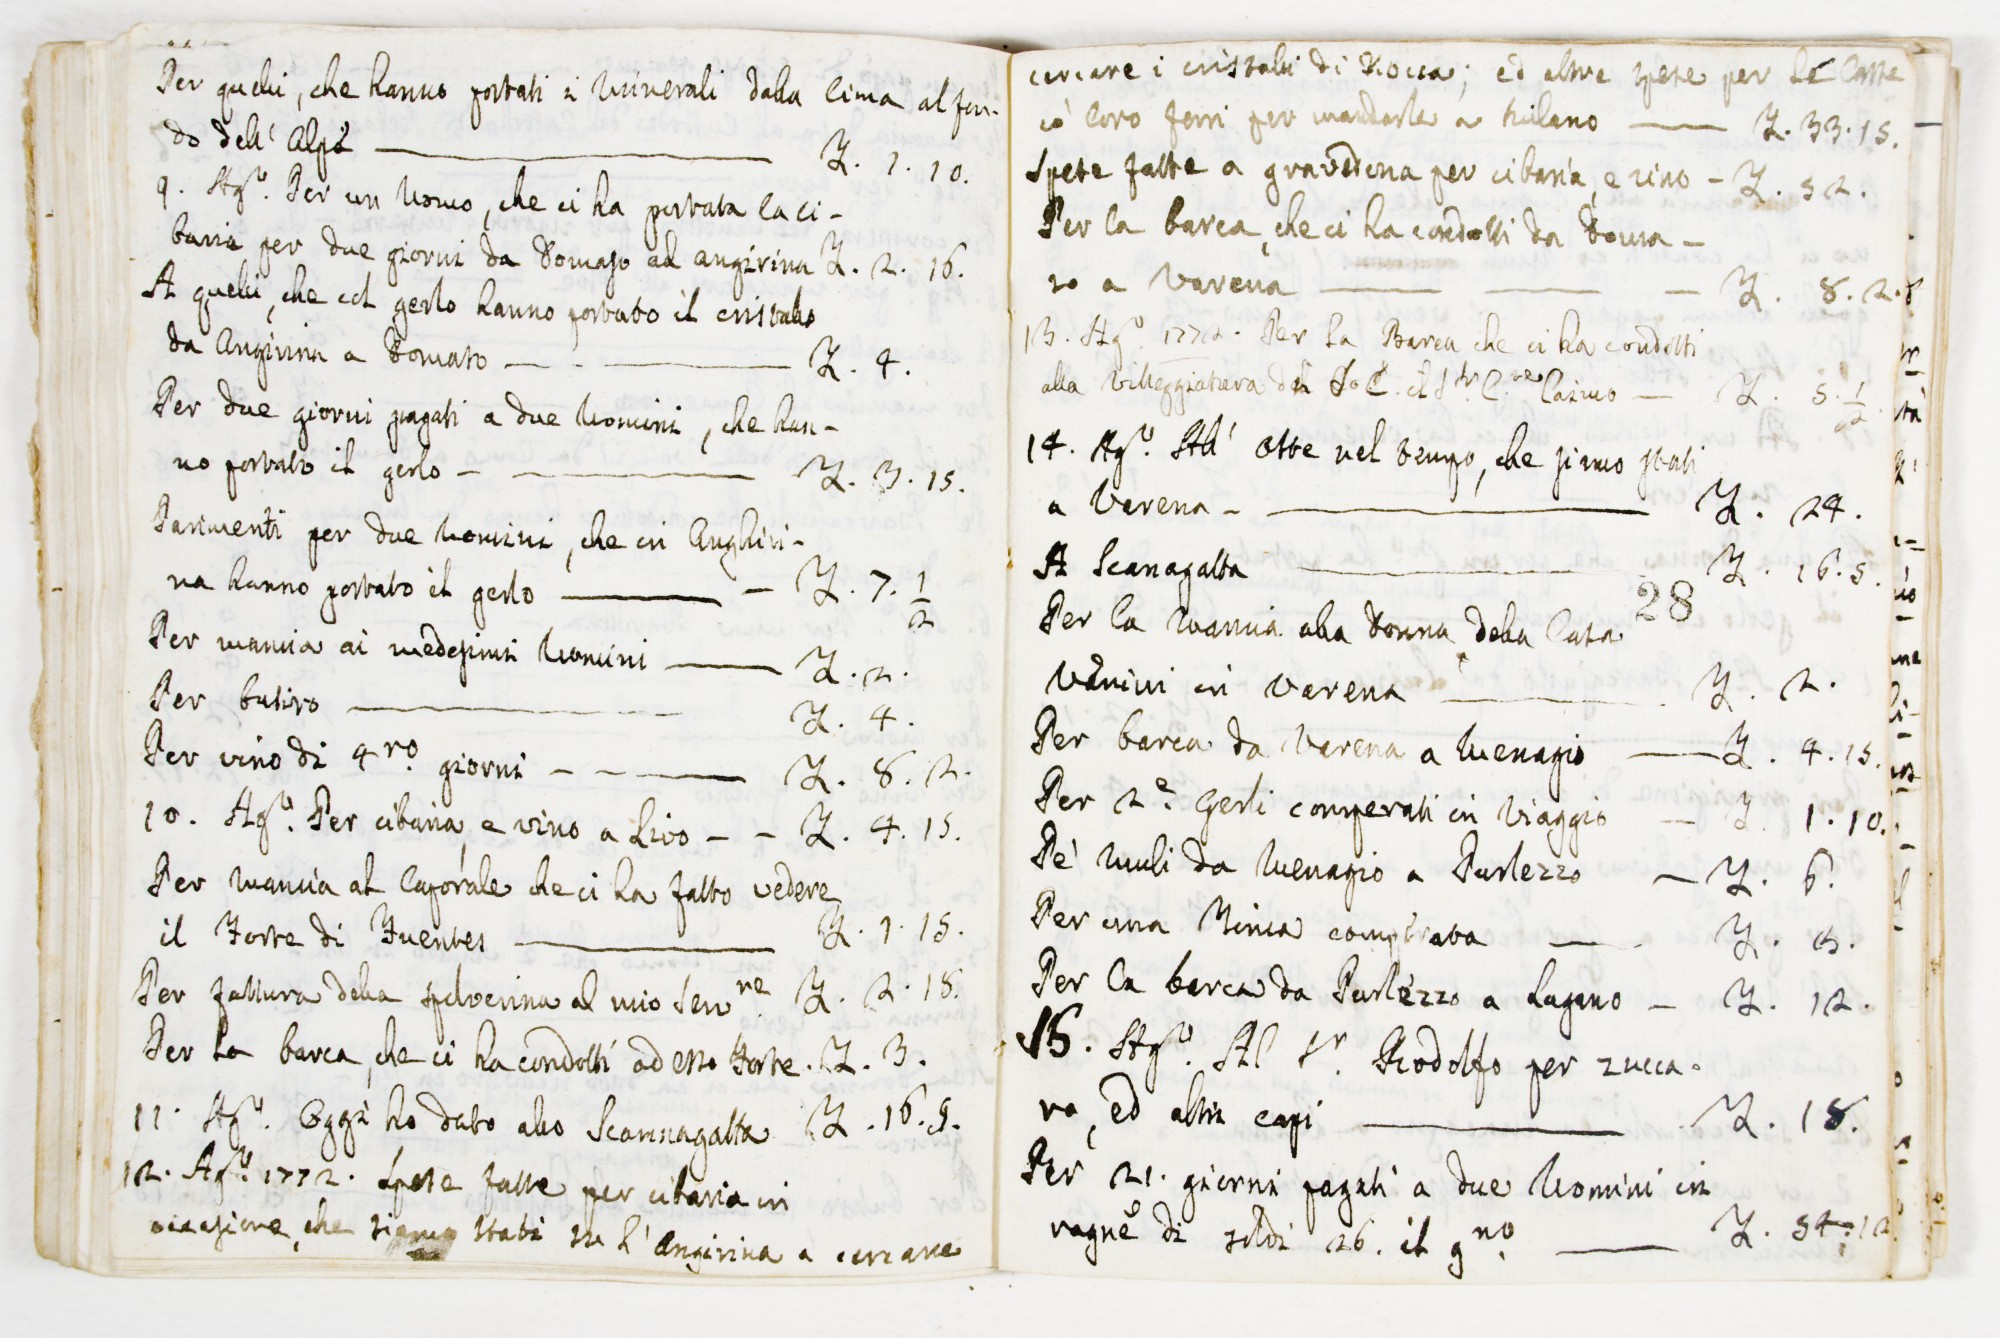 Per quelli, che hanno portati i Minerali dalla Cima al fon-
do dell' Alpe — L. 1. 10.
9. Ag.º Per un Uomo, che ci ha portata la ci-
baria per due giorni da Domaso all Angirina L. 2. 16.
A quelli, che col gerlo hanno portato il cristallo
da Angirina a Domaso — L. 4.
Per due giorni pagati a due Uomini, che han-
no portato il gerlo — L. 3. 15.
Parimenti per due Uomini, che in Anghiri-
na hanno portato il gerlo — L. 7. 1/2
Per mancia ai medesimi Uomini — L. 2.
Per butiro — L. 4.
Per vino di 4ro. giorni — L. 8. 2.
10. Ag.º Per cibaria, e vino a Livo — L. 4. 15.
Per Mancia al Caporale che ci ha fatto vedere
il Forte di Fuentes — L. 1. 15.
Per fattura della spolverina al mio Serv.re L. 2. 18.
Per la barca, che ci ha condotti ad esso Forte. L. 3.
11. Ag.º Oggi ho dato allo Scannagatta L. 16. 5.
12. Ag.º 1772. Spese fatte per cibaria in
occasione, che siamo stati su l' Angirina a cercare
cercare i cristalli di Rocca; ed altre spese per le Casse
co' loro ferri per mandarle a Milano — L. 33. 15.
Spese fatte a Gravedona per cibaria, e vino — L. 52.
Per la barca, che ci ha condotti da Doma-
so a Varena — L. 8. 2.
13. Ag.º 1772. Per la Barca che ci ha condotti
alla Villeggiatura del il Sr. Caimo — L. 5. 1/2.
14. Ag.º All' Oste nel tempo, che siamo stati
a Varena — L. 24.
A Scanagatta — L. 16. 5.
28
Per la Mancia alla Donna della Casa
Venini in Varena — L. 2.
Per barca da Varena a Menagio — L. 4. 15.
Per 2e. Gerli comperati in Viaggio — L. 1. 10.
Pe' Muli da Menagio a Purlezzo — L. 6.
Per una comprata — L.
Per la barca da Purlezzo a Lugano — L. 12.
15. Ag.º Al Sr. Rodolfo per zucca-
ro, ed altri capi — L. 18.
Per 21. giorni pagati a due Uomini in
ragne di soldi 26. il gno. — L. 54. 12